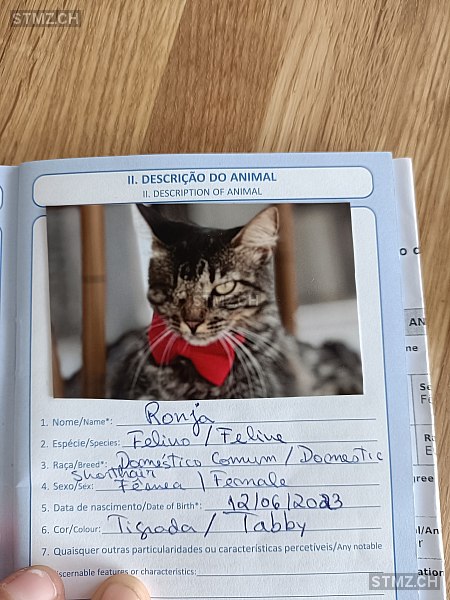 STMZ.CH
STMZ.CH
II. DESCRIÇÃO DO ANIMAL
II. DESCRIPTION OF ANIMAL
1. Nome/Name*: Ronja
2. Espécie/Species: Felino / Feline
3. Raça/Breed*: Doméstico Comum / Domestic
Shorthair
4. Sexo/Sex: Fêmea / Female
5. Data de nascimento/Date of Birth*: 12/06/2023
6. Cor/Colour: Tigrada / Tabby
7. Quaisquer outras particularidades ou características percetíveis/Any notable
discernable features or characteristics:
AN
STMZ.CH